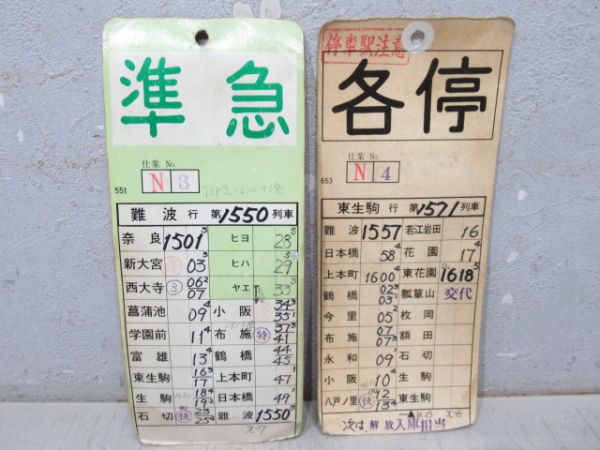 準急
仕業 No.
551
N 3
難波 行 第1550列車
奈良 1501³ ヒヨ 28⁵
新大宮 03³ ヒハ 29⁵
西大寺 ③ 06² 07 ヤエ 33³
菖蒲池 09⁴ 小阪 34³ 35¹
学園前 11⁴ 布施 特 37³ 41
富雄 13⁴ 鶴橋 44 45
東生駒 16³ 17 上本町 47¹
生駒 18⁴ 19² 日本橋 49¹
石切 快 23 25 難波 1550³
停車駅注意
各停
仕業 No.
653
N 4
東生駒 行 第1571列車
難波 1557 若江岩田 16⁴
日本橋 58⁴ 花園 17⁴
上本町 1600⁴ 東花園 1618⁵
鶴橋 02³ 03¹ 瓢箪山 交代
今里 05² 枚岡
布施 07 07³ 額田
永和 09¹ 石切
小阪 10⁴ 生駒
八戸ノ里 快 12 13⁴ 東生駒
次は 解放 入庫担当